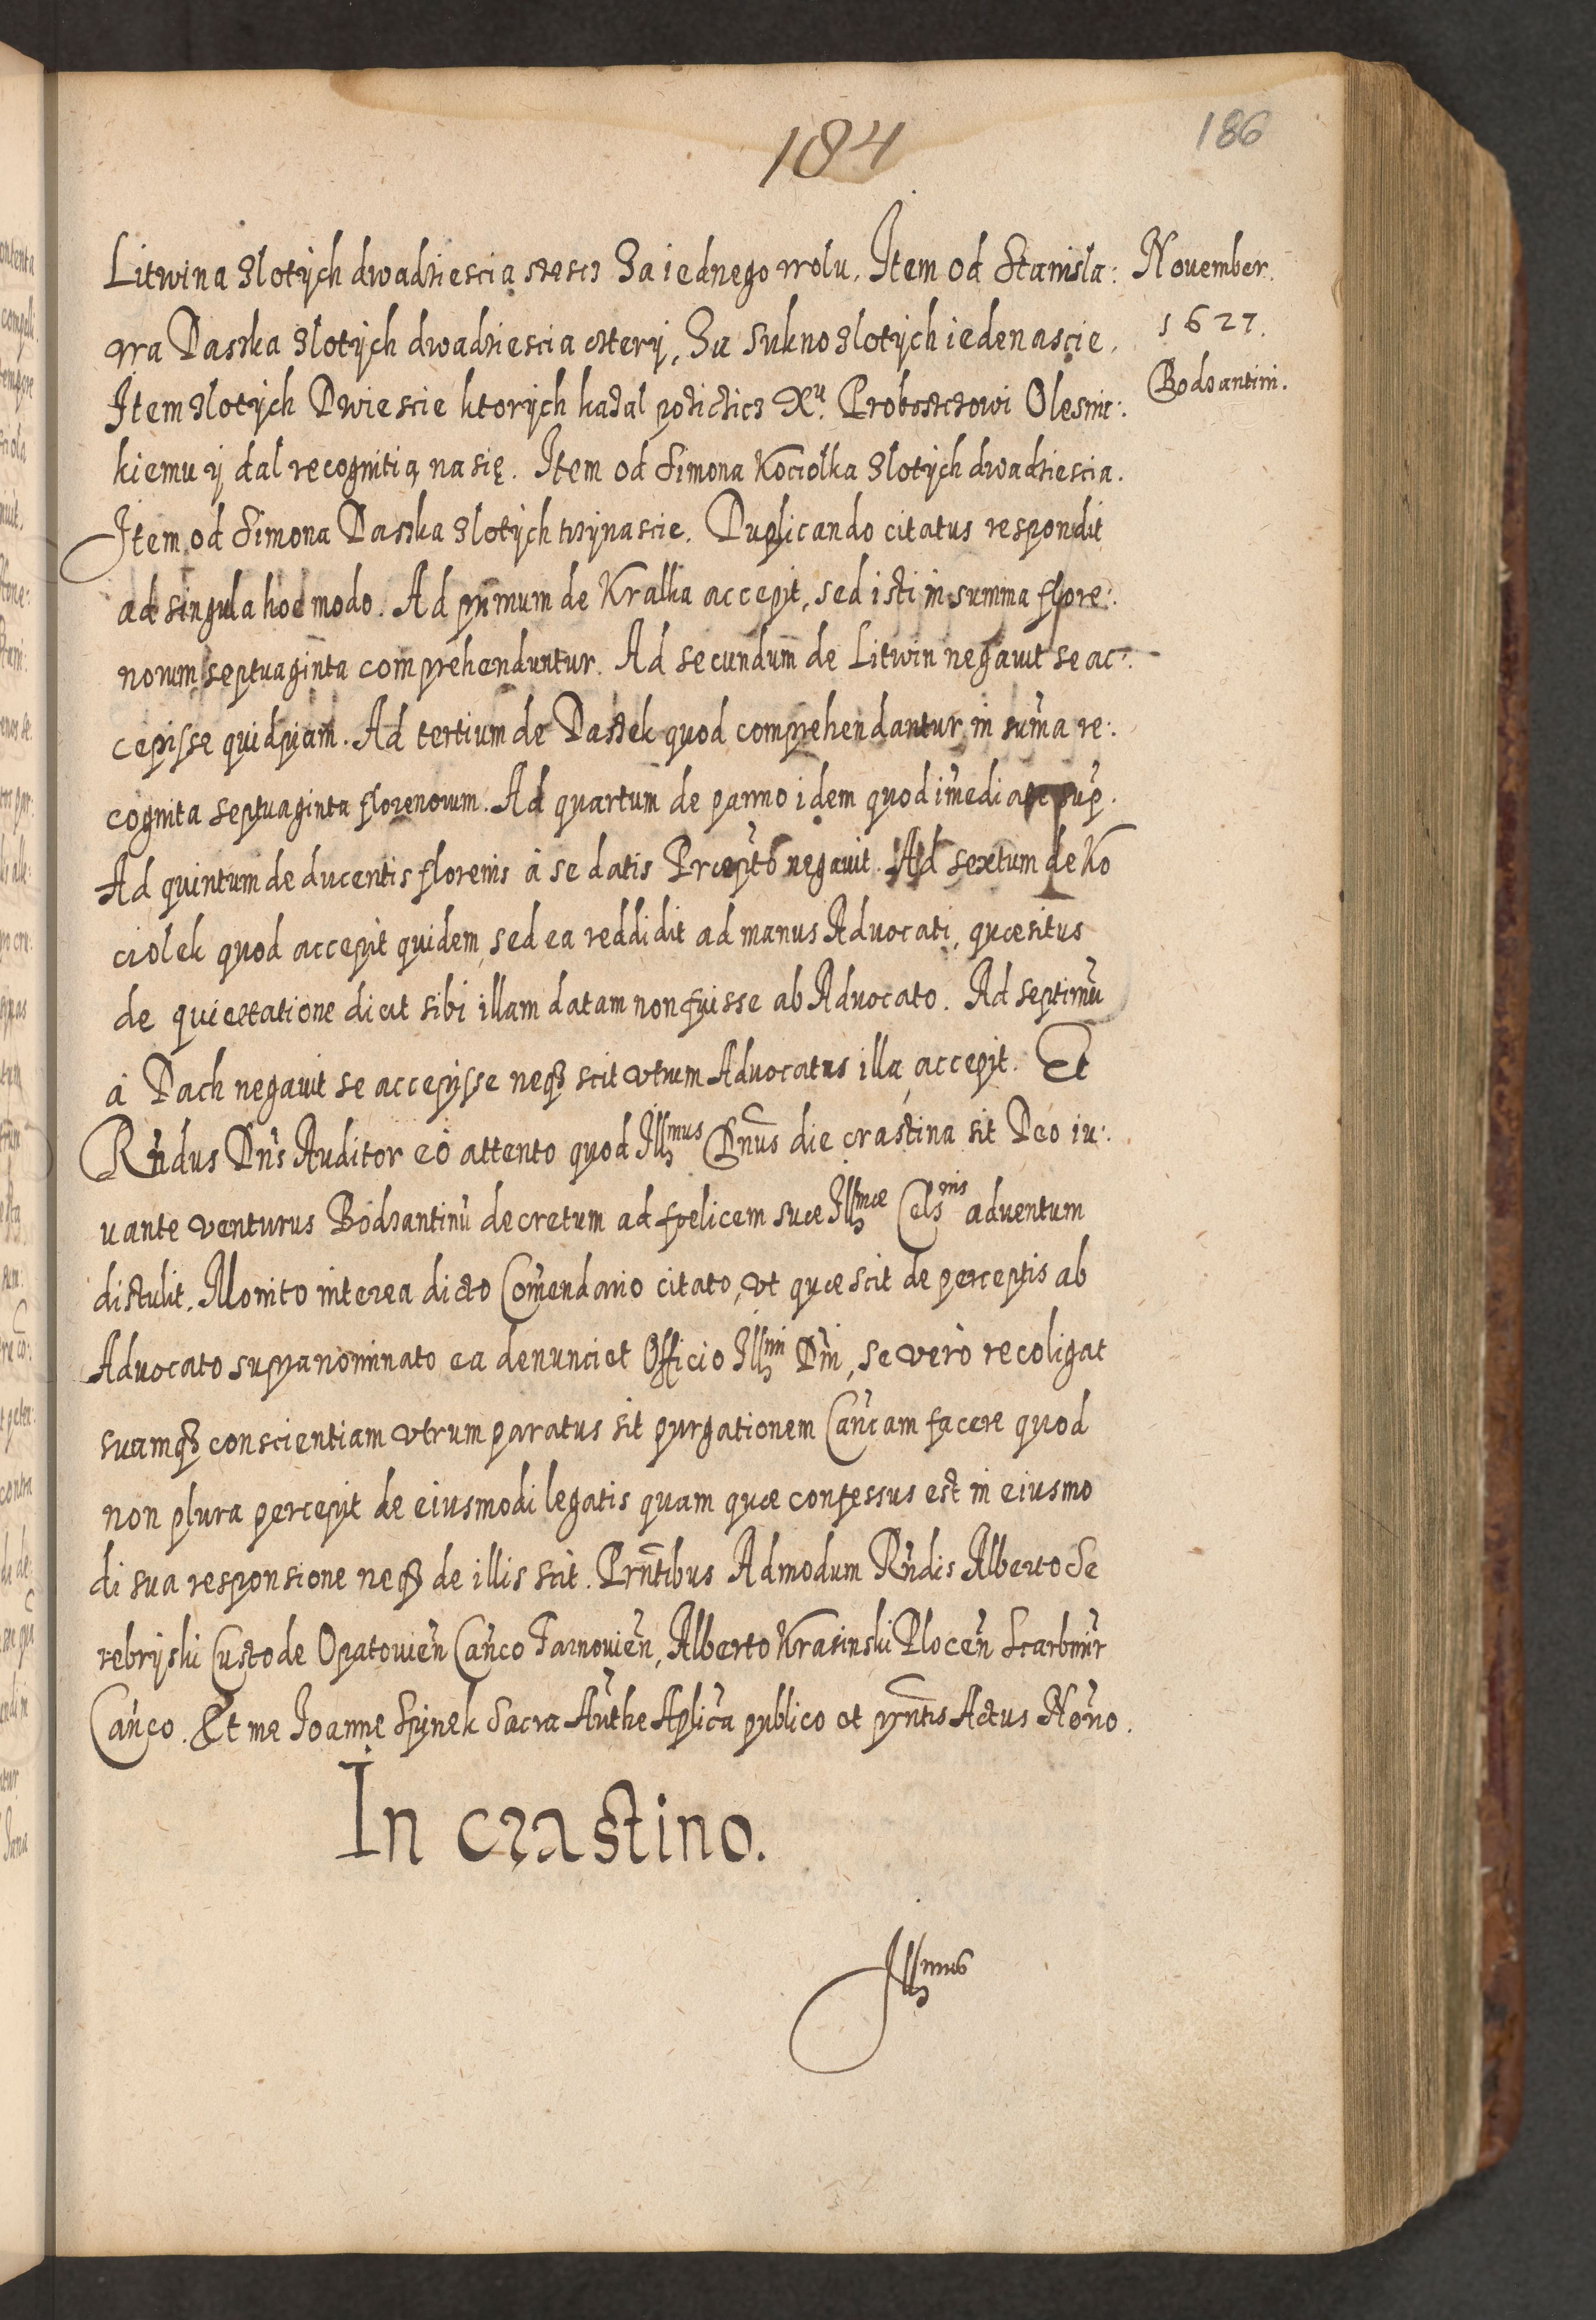 184
186
November.
1627.
Bodzantini.
Litwina zlotÿch dwadziescia szesc Za iednego wolu, Item od Stanisla:
wa Daszka zlotÿch dwadziescia czterÿ, Za sukno zlotÿch iedenascie.
Item zlotÿch Dwiescie ktorych kazal poziczicz Xu. Proboszczowi Olesnic:
kiemu ÿ dal recognitią na się. Item od Simona Kociolka zlotÿch dwadziescia.
Item od Simona Daszka zlotÿch trzÿnascie. Duplicando citatus respondit
ad singula hoc modo. Ad primum de Kralka accepit, sed isti in summa flore:
norum septuaginta comprehenduntur. Ad secundum de Litwin negavit se ac:
cepisse quidpiam. Ad tertium de Daszek quod comprehendantur in sum̃a re:
cognita septuaginta florenorum. Ad quartum de panno idem quod im̃ediate sup̃.
Ad quintum de ducentis florenis à se datis Prepto negavit. Ad sextum de Ko
ciolek quod accepit quidem, sed ea reddidit ad manus Advocati, quæsitus
de quiettatione dicit sibi illam datam non fuisse ab Advocato. Ad septimũ
à Dach negavit se accepisse neq3 scit vtrum Advocatus illa accepit. Et
Rñdus Dñs Auditor eo attento quod Illmus Dñus die crastina sit Deo iu:
vante venturus Bodzantinũ decretum ad fœlicem suæ Illmæ Celsnis adventum
distulit. Monito interea dicto Com̃endario citato, vt quæ scit de perceptis ab
Advocato supranominato ea denunciet Officio Illmi Dñi, se verò recoligat
suamq3 conscientiam vtrum paratus sit purgationem Cañcam facere quod
non plura percepit de eiusmodi legatis quam quæ confessus est in eiusmo
di sua responsione neq3 de illis scit. Prñtibus Admodum Rñdis Alberto Se
rebrÿski Custode Opatovieñ Cañco Tarnovieñ, Alberto Krasinski Ploceñ Scarbmir̃
Cañco. Et me Ioanne Spinek Sacra Autĥe Aplica publico et prñtis Actus Notrio.
In crastino.
Illmus